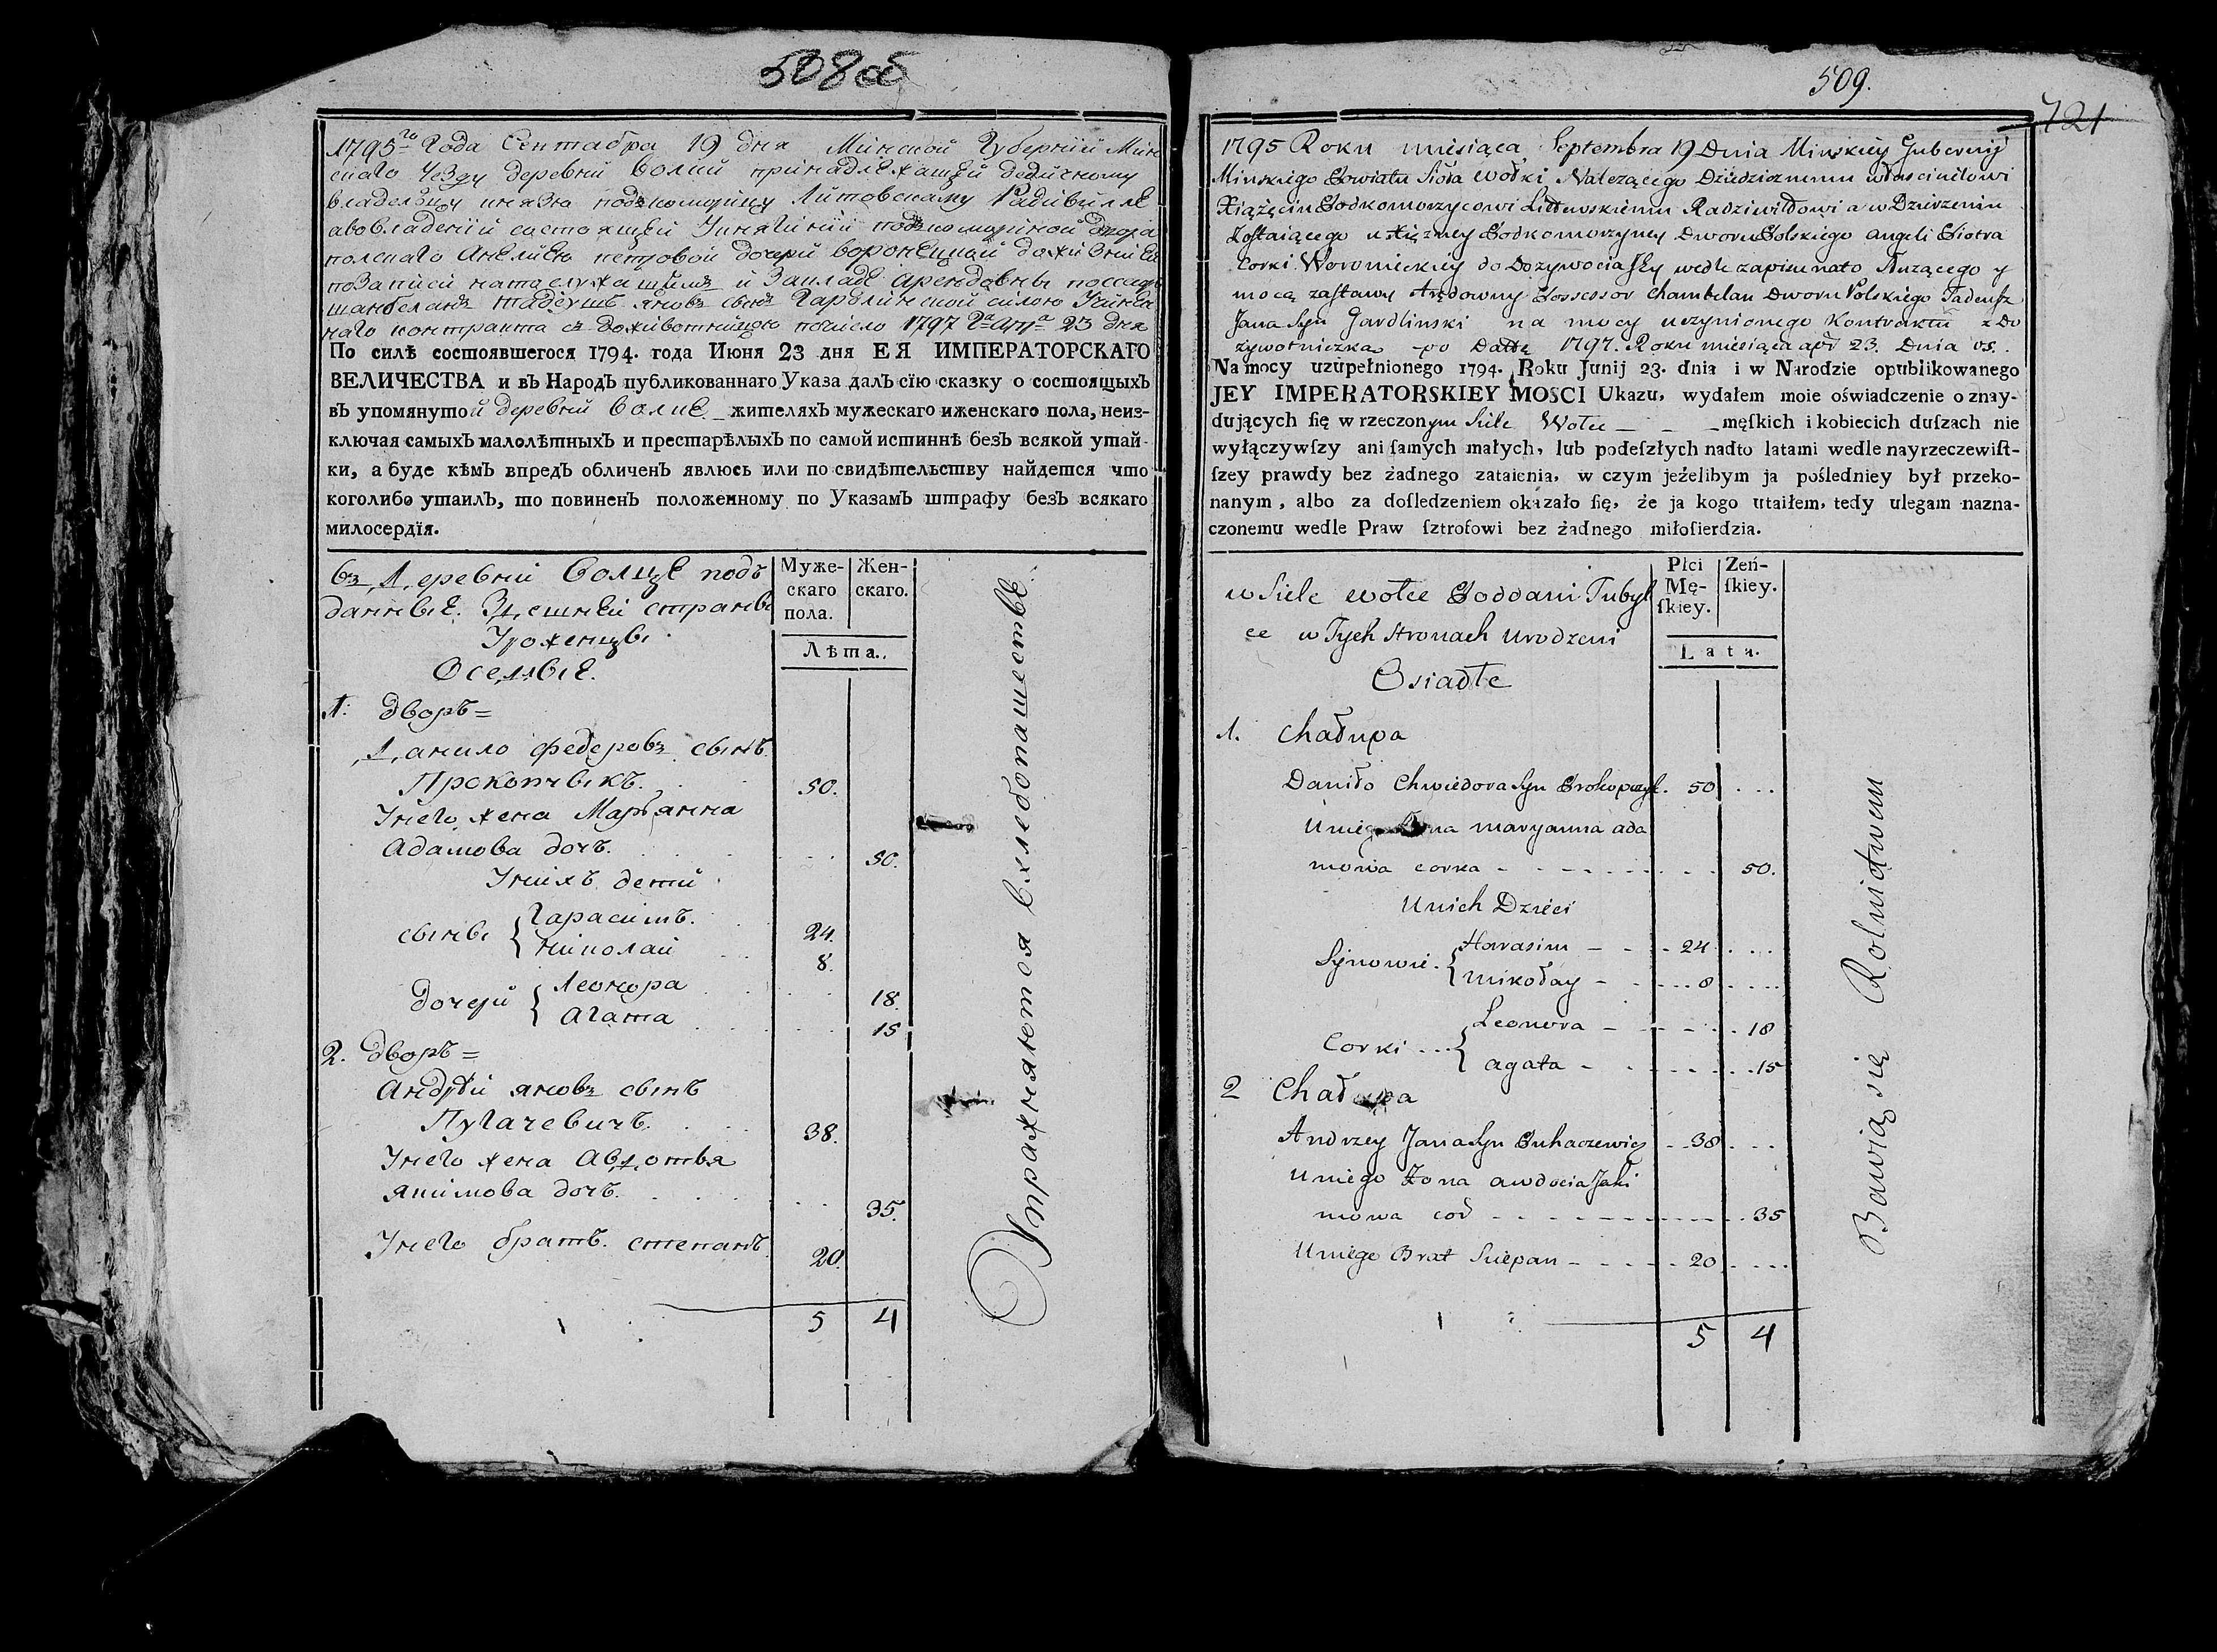 508 об
1795го Года Сентабра 19 дня Минской Губернии Мин
скаго Уезду деревни Волки принадлежащей дедичному
владельцу князю подкоморицу Литовскому Радивилле
а во владении состоящей Княгинии подкомориной двора
полскаго Анелиею петровой дочери воронецкой
по записи
шамбеланъ Тадеушъ яновъ сынъ силою Учинен
наго контракта съ дожывотницою 1797 23 дня
По силѣ состоявшегося 1794. года Июня 23 дня ЕЯ ИМПЕРАТОРСКАГО
ВЕЛИЧЕСТВА и въ Народъ публикованнаго Указа далъ сїю сказку о состоящыхъ
въ упомянутой деревни Волке жителяхъ мужескаго иженскаго пола, неиз-
ключая самыхъ малолѣтныхъ и престарѣлыхъ по самой истиннѣ безъ всякой утай-
ки, а буде кѣмъ впредъ обличенъ явлюсь или по свидѣтельству найдется что
коголибо утаилъ, то повиненъ положенному по Указамъ штрафу безъ всякаго
милосердїя.
въ Деревни Волце подъ
данные. Здешней страны
Уроженцы
Оселые.
Муже-
скаго
пола.
Жен-
скаго.
Лѣта.
1. дворъ =
Данило федеровъ сынъ
Прокопчыкъ. 50.
Унего жена Марьянна
Адамова дочъ. 50.
Унихъ дети
сыны { Гарасимъ. 24.
Николай 8.
дочери { Леонора 18.
Агата 15
2. дворъ =
Андрей яновъ сынъ
Пугачевичъ. 38.
Унего жена Авдотья
якимова дочъ. 35.
Унего братъ степанъ 20.
5 4
Упражняются вхлебопашестве
509.
721
1795 Roku miesiąca Septembra 19 Dnia Minskiey Gubernij
Minskiego Powiatu Sioła Wołki Należącego Dziedzicznemu włascicilowi
Xiążęciu Podkomorzycowi Littewskiemu Radziwiłłowi a w Dzierzeniu
Zostaiącego u Xiężney Podkomorzyney Dworu Polskiego Angeli Piotra
Corki Woronieckiey do Dozywocia Jey wedle zapisu nato służącego y
mocą zastawy Possessor Chambelan Dworu Polskiego Tadeusz
Jana Syn Jardlinski na mocy uczynionego Kontraktu z Do
zywotniczką po Dattę 1797. Roku miesiąca apr 23. Dnia vs.
Na mocy uzupełnionego 1794. Roku Junij 23. dnia i w Narodzie opublikowanego
JEY IMPERATORSKIEY MOSCI Ukazu, wydałem moie oświadczenie o znay-
dujących ſię w rzeczonym Siele Wołce męſkich i kobiecich duſzach nie
wyłączywſzy ani ſamych małych, lub podeſzłych nadto latami wedle nayrzeczewiſt-
ſzey prawdy bez żadnego zataienia, w czym jeżelibym ja pośledniey był przeko-
nanym, albo za doſledzeniem okazało ſię, że ja kogo utaiłem, tedy ulegam nazna-
czonemu wedle Praw ſztrofowi bez żadnego miłoſierdzia.
w Siele Wołce Poddani Tubyl
ce w Tych stronach urodzeni
Osiadłe
Płci
Mę-
ſkiey.
Zeń-
ſkiey.
Lata.
1. Chałupa
Daniło Chwiedora Syn Prokopczyk. 50
Uniego Zona maryanna ada
mowa corka 50.
Unich Dzieci
Synowie { Harasim 24
Mikołay 8
Corki { Leonora 18
Agata 15
2 Chałupa
Andrzey Jana Syn Puhaczewicz 38
Uniego Zona awdocia Jaki
mowa cor 35
Uniego Brat Sciepan 20
5 4
Bawią się Rolnictwem